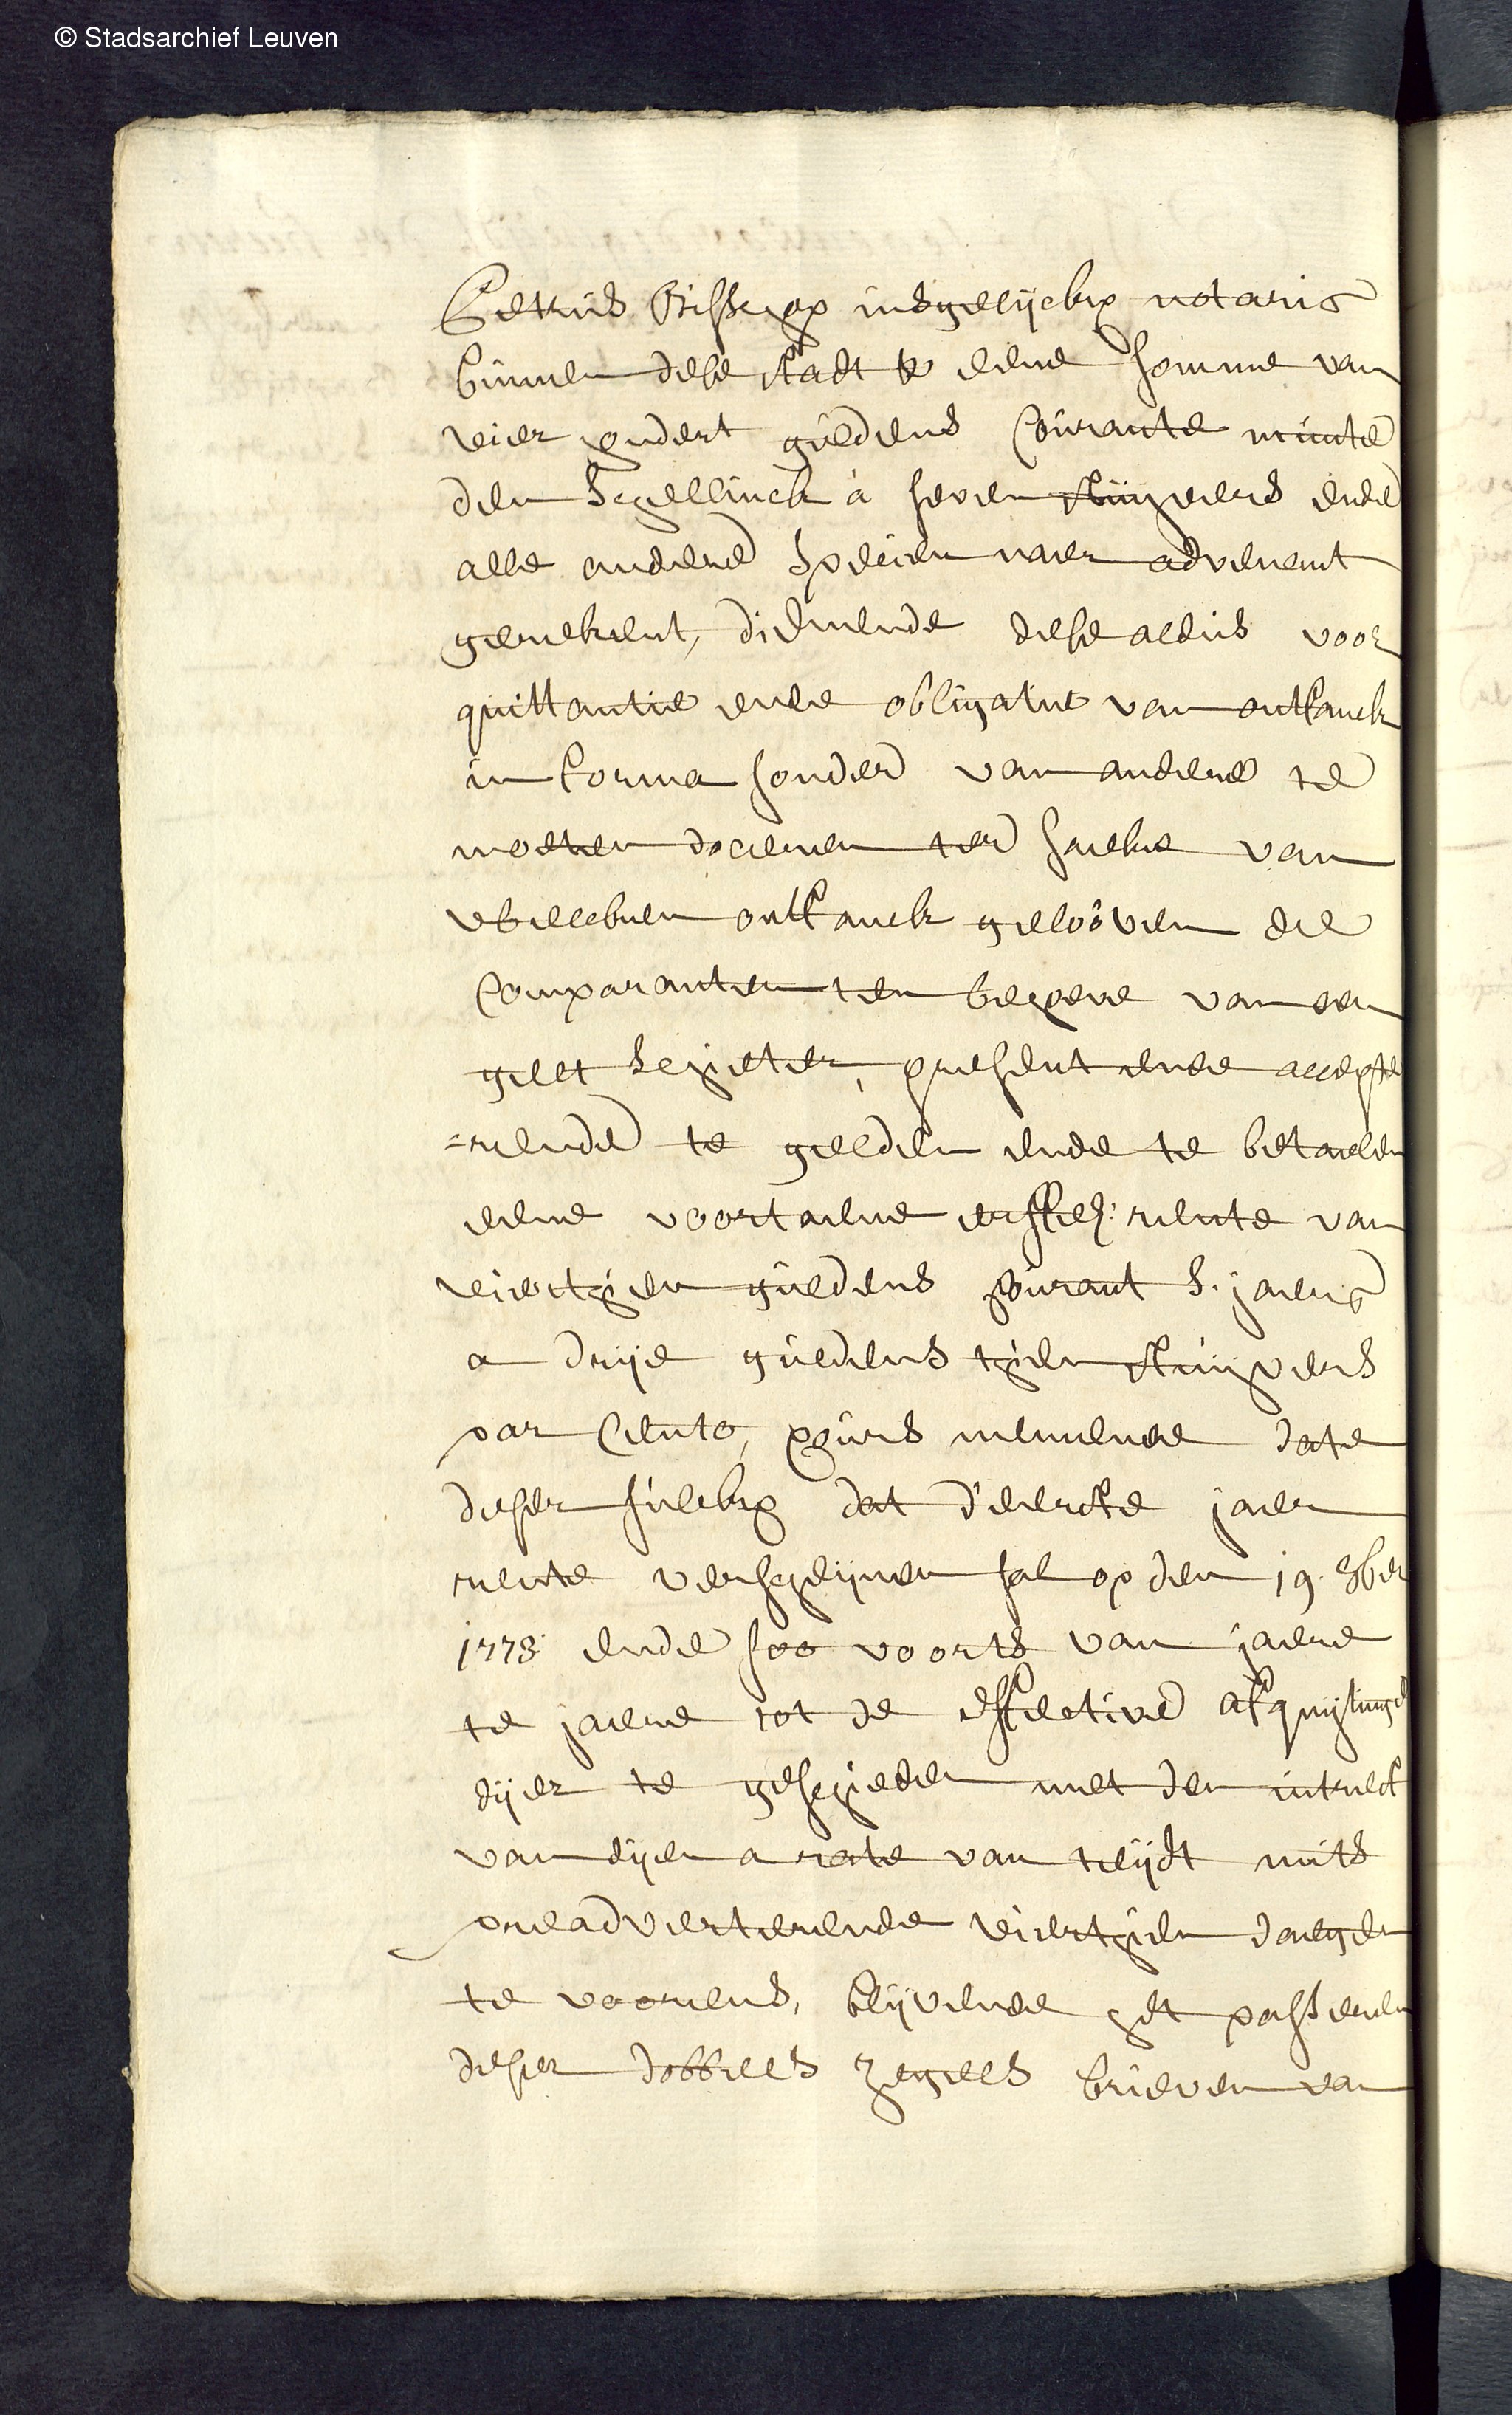 © Stadsarchief Leuven
Petrus Bisschop insgelijckx notaris
binnen dese stadt eene somme van
vier hondert guldens courante munte
den schellinck à seven stuijvers ende
alle andere specien naer advenant
gerekent, dienende dese aldus voor
quittantie ende obligatie van ontfanck
in forma sonder van andere te
moeten doceren ter saeke van
welcken ontfanck gelooven die
comparanten ten behoeve van den
gelt schieter, present ende accepte
=rende te gelden ende te betaelen
eene voortaene erffel: rente van
vierthien guldens courant s. jaers
a drije guldens thien stuijvers
par cento, cours nemende date
deser sulckx dat d'eerste jaer
rente verschijnen sal op den 19. 8ber
1773 ende soo voorts van jaere
te jaere tot de effective afquijtinge
dijer te geschieden met den intrest
van dijen a rate van teijdt mits
preadverterende vierthien daegen
te voorens, blijvende het passeren
deser dobbels zegels brieven van